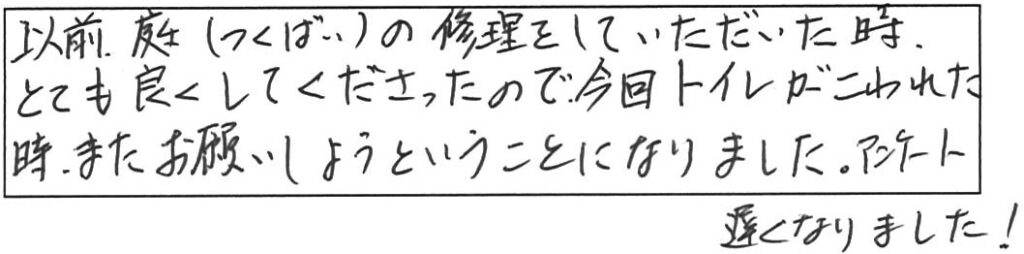 以前、庭(つくばい)の修理をしていただいた時、
とても良くしてくださったので、今回トイレがこわれた
時、またお願いしようということになりました。アンケート
遅くなりました!